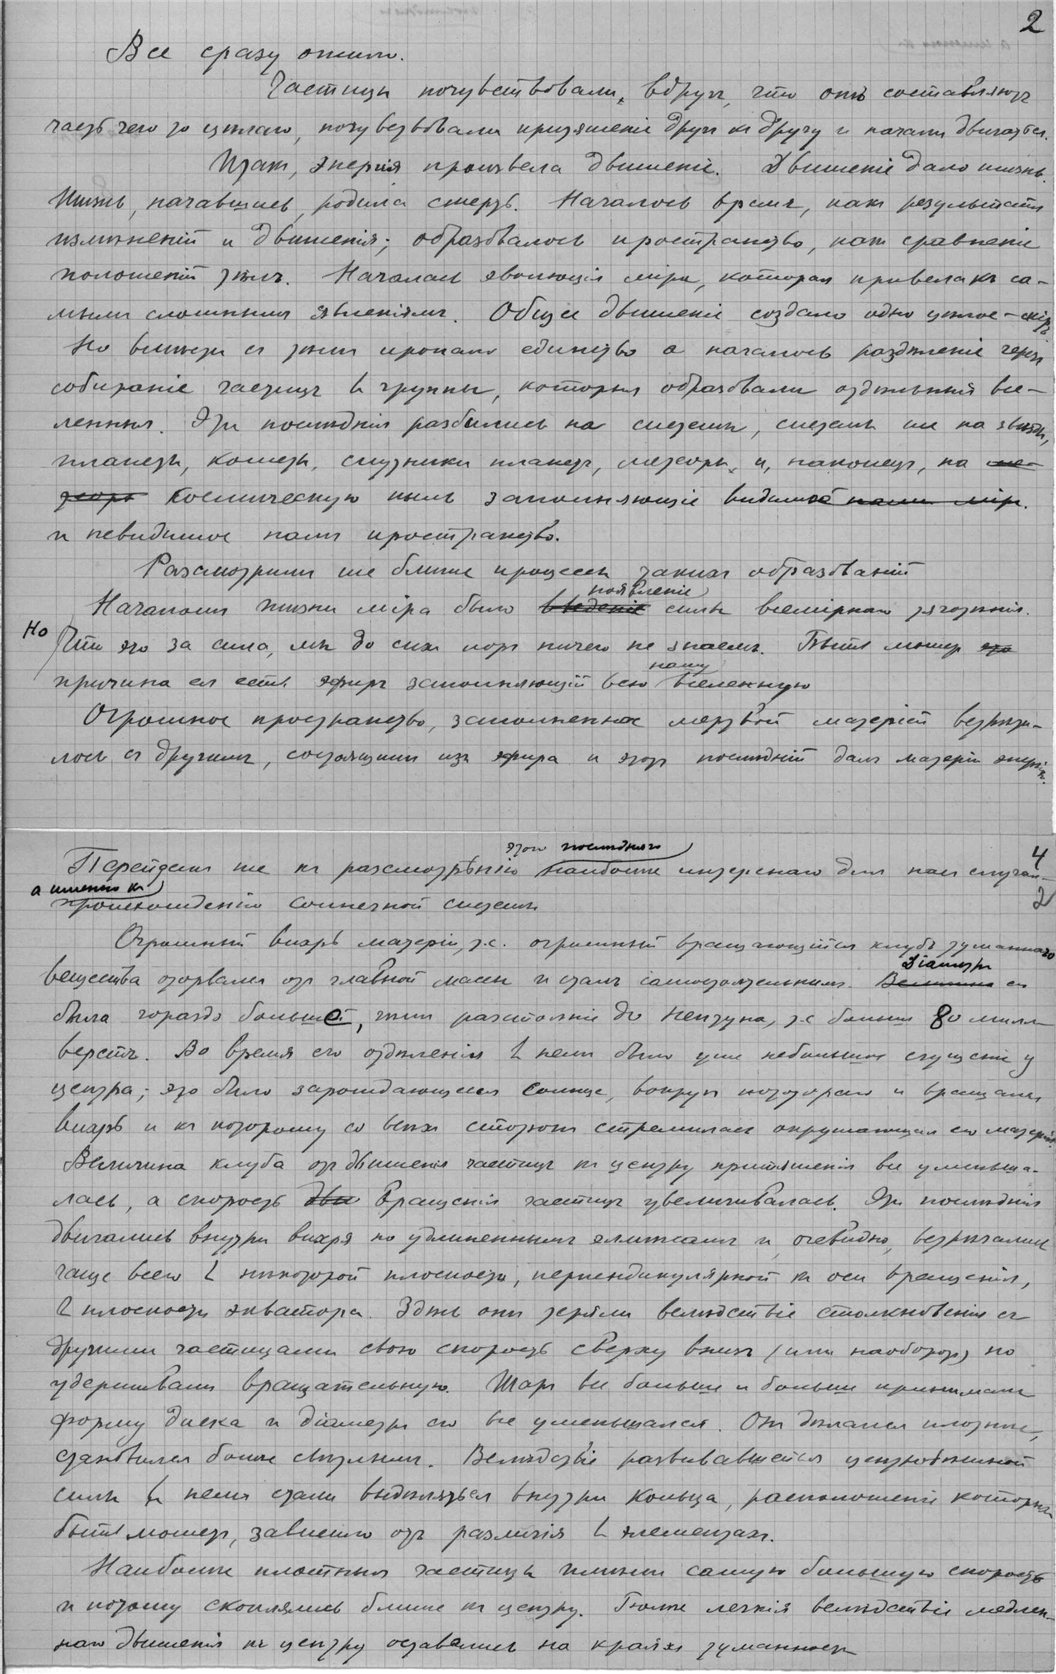 2
Все сразу ожило.
Частицы почувствовали, вдругъ, что онѣ составляютъ
часть чего то цѣлаго, почувствовали притяженіе другъ къ другу и начали двигаться.
Итакъ, энергія произвела движеніе. Движеніе дало жизнь.
Жизнь, начавшись, родила смерть. Началось время, какъ результатъ
измѣненій и движенія; образовалось пространство, какъ сравненіе
положеній тѣлъ. Началась эволюція міра, которая привела къ са-
мымъ сложнымъ явленіямъ. Общее движеніе создало одно цѣлое – міръ
Но вмѣстѣ съ тѣмъ пропало единство а началось раздѣленіе черезъ
собираніе частицъ въ группы, которыя образовали отдѣльныя все-
ленныя. Эти послѣднія разбились на системы, системы же на звѣзды,
планеты, кометы, спутники планетъ, метеоры, и, наконецъ, на ме-
теоры космическую пыль заполняющіе видимое нами міръ.
и невидимое нами пространство.
Разсмотримъ же ближе процессъ такихъ образованій
появленіе
Началомъ жизни міра было введеніе силы всемірнаго тяготѣнія.
Но
Что это за сила, мы до сихъ поръ ничего не знаемъ. Быть можетъ это
нашу
причина ея есть эфиръ заполняющій всю вселенную
Огромное пространство, заполненное мертвой матеріей встрѣти-
лось съ другимъ, состоящимъ изъ эфира и этотъ послѣдній далъ матеріи энергію.
этого послѣдняго
4
Перейдемъ же къ разсмотрѣнію наиболѣе интереснаго для насъ случая –
а именно къ
2
происхожденію солнечной системы
Огромный вихрь матеріи, т.е. огромный вращающійся клубъ туманнаго
Діаметръ
вещества оторвался отъ главной массы и сталъ самостоятельнымъ. Величина ея
была гораздо больше, чѣмъ разстояніе до Нептуна, т.е. больше 80 милл
верстъ. Во время его отдѣленія въ немъ было уже небольшое сгущеніе у
центра; это было зарождающееся солнце, вокругъ котораго и вращался
вихрь и къ которому со всѣхъ сторонъ стремилась окружающая его матерія.
Величина клуба отъ движенія частицъ къ центру притяженія все уменьша-
лась, а скорость дви вращенія частицъ увеличивалась. Эти послѣднія
двигались внутри вихря по удлиненнымъ эллипсамъ и, очевидно, встрѣчались
чаще всего въ нѣкоторой плоскости, перпендикулярной къ оси вращенія,
въ плоскости экватора. Здѣсь они теряли вслѣдствіе столкновенія съ
другими частицами свою скорость сверху внизъ (или наоборотъ) но
удерживали вращательную. Шаръ все больше и больше принималъ
форму диска и діаметръ его все уменьшался. Онъ дѣлался плотнѣе,
становился болѣе свѣтлымъ. Вслѣдствіе развивавшейся центробѣжной
силы въ немъ стали выдѣляться внутри кольца, расположеніе которыхъ
быть можетъ, зависѣло отъ различія въ элементахъ.
Наиболѣе плотныя частицы имѣли самую большую скорость
и потому скоплялись ближе къ центру. Болѣе легкія вслѣдствіе медлен-
наго движенія къ центру оставались на краяхъ туманности